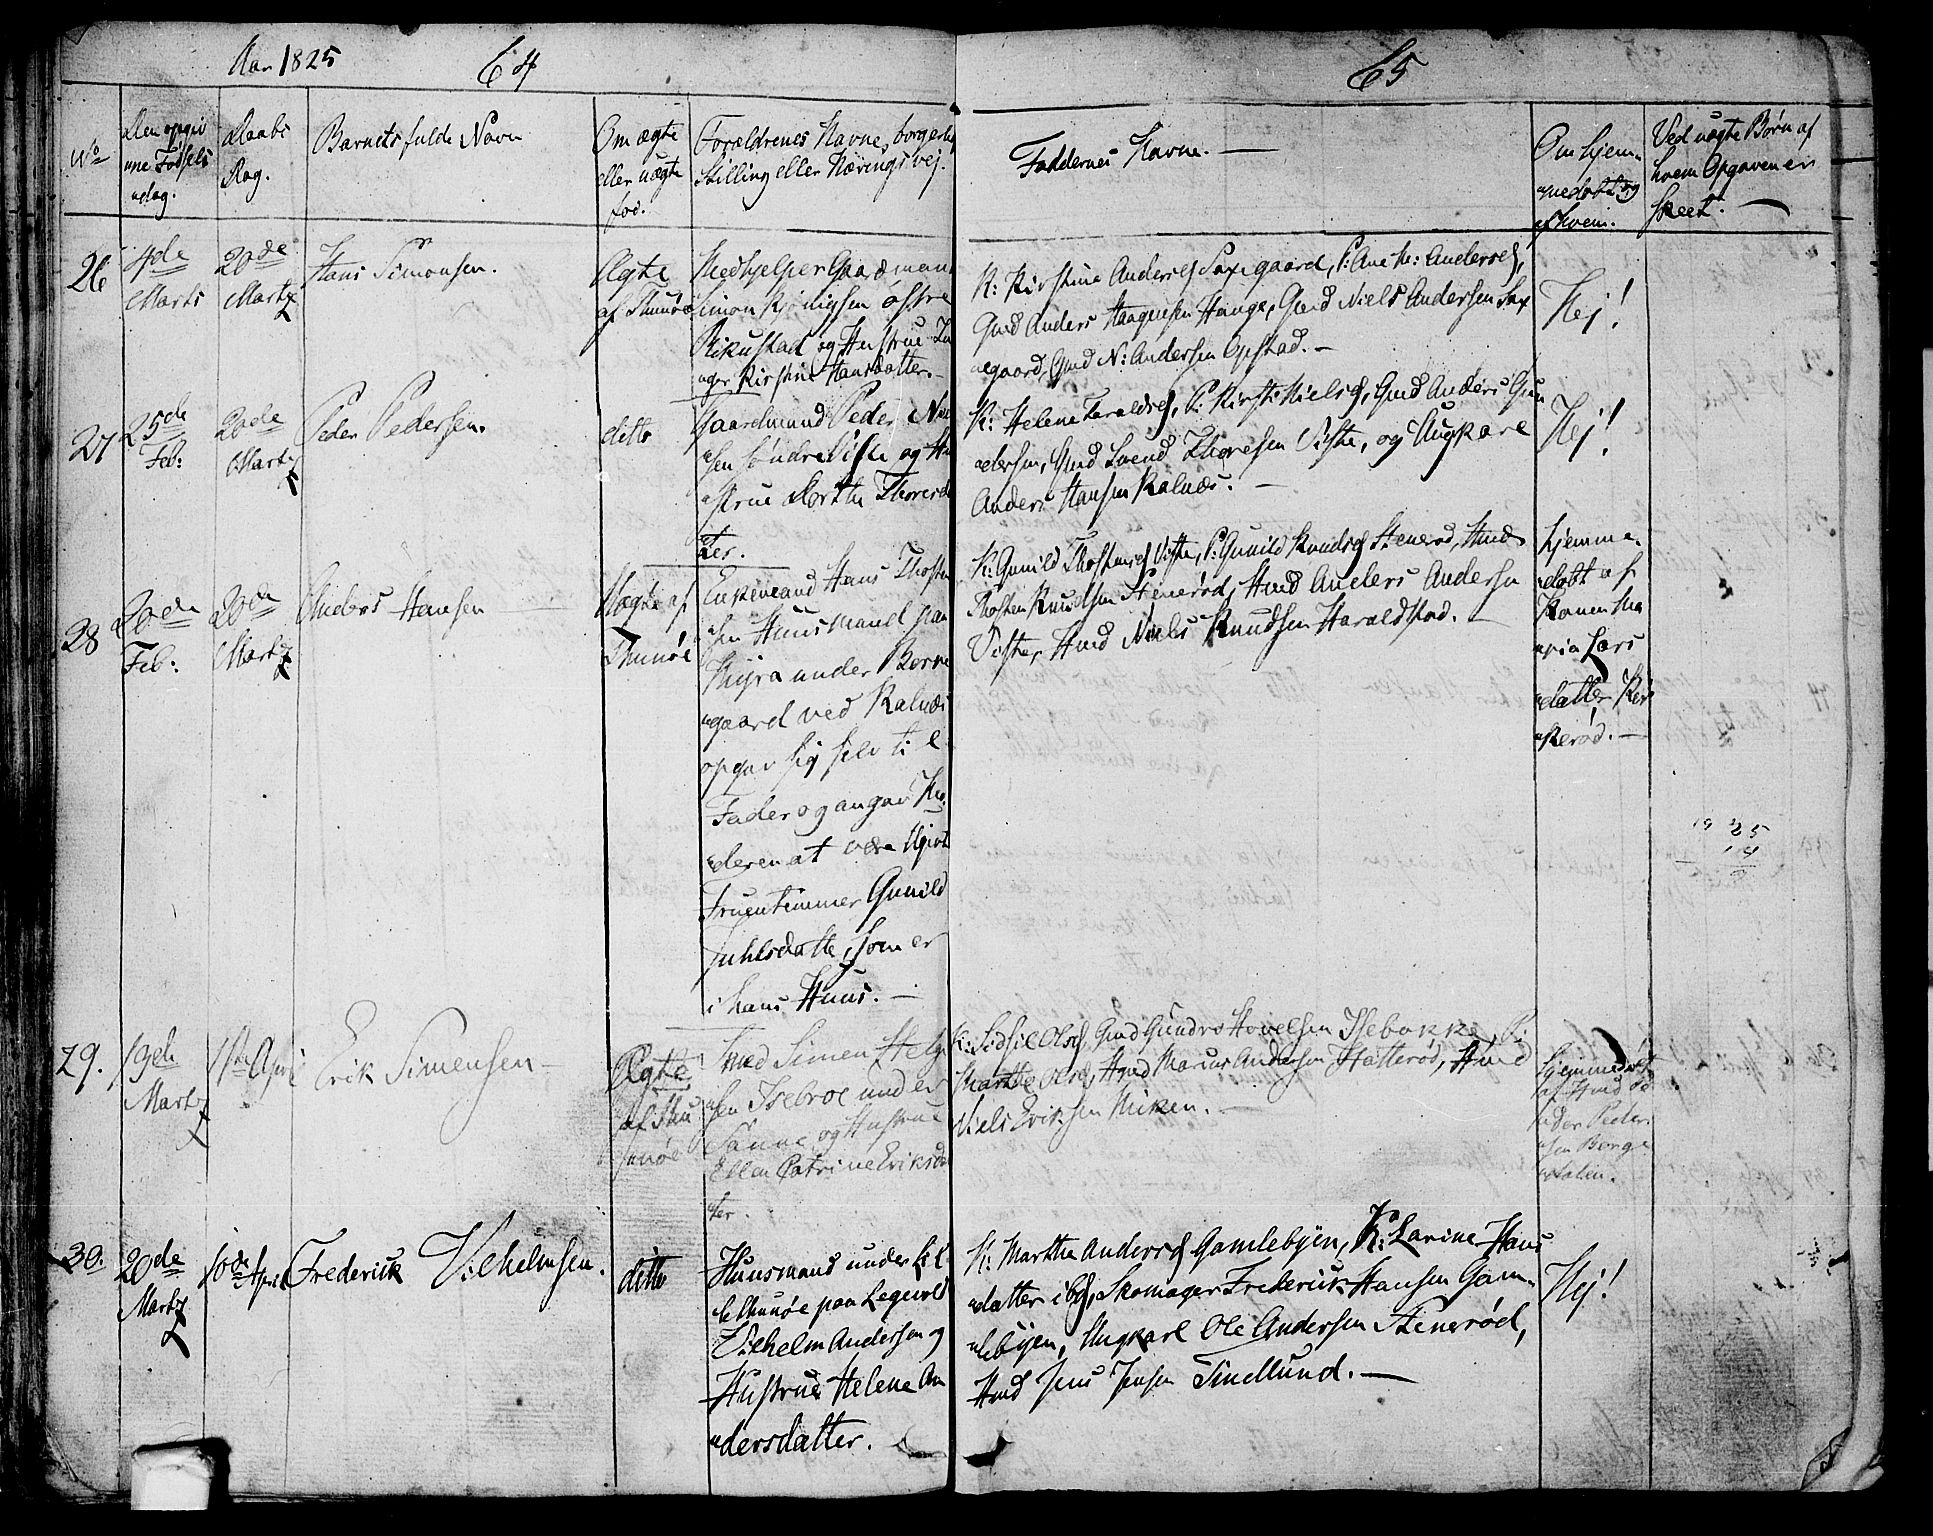 Aar 1825 64
65
No
Den opgiv
ne Fødsels
dag.
Daabs
Dag.
Barnets fulde Navn
Om ægte
eller uægte
fød.
Forældrenes Navne, borgerlig
Stilling eller Næringsvej.
Faddernes Navne. —
Om hjem
medøbt og
af hvem.
Ved uægte Børn af
hvem Opgaven er
skeet. —
26
4de
Marts
20de
Marts
Hans Simonsen.
Ægte
af Thunøe
Medhjelper Gaardmand
Simon østre
og Hustrue In
ger Kirstine Hansdatter. —
K: Kirstine Andersd Saxegaard, P: Ane M: Andersd,
Gmd Anders Haagensen Hauge, Gmd Niels Andersen Sax
egaard, Gmd N: Andersen Opstad. —
Nej!
27
25de
Feb:
20de
Marts
Peder Pedersen.
ditto
Gaardmand Peder Niel
sen søndre Viste og Hu
strue Dorthe Thoresdat
ter.
K: Helene Taraldsd, P: Kirsti Nielsd, Gmd Anders Gun
dersen, Gmd Svend Thoresen Viste, og Ungkarl
Anders Hansen Kalnæs. —
Nej!
28
20de
Feb:
20de
Marts
Anders Hansen
Uægte af
Thunöe
Enkemand Hans Thosten
sen Huusmand paa
Myra under Borre
gaard ved Kalnæs
opgav sig selv til
Fader og angav Mo
deren at være Ugivt
Fruentimmer Gunild
Juhlsdatte, som er
i hans Huus. —
K: Gunild Thostensd Viste, P: Gunild Knudsd Stenerød, Hmd
Thosten Knudsen Stenerød, Hmd Anders Andersen
Viste, Hmd Niels Knudsen Haraldstad. —
hjemme
døbt af
Konen Ma
ria Lars
datter Ker
kerød. —
29.
19de
Marts
1ste April
Erik Simensen —
Ægte
af Thu
nøe
Smed Simen Helge
sen Isebroe under
Sanne og Hustrue
Ellen Patrine Eriksdat
ter.
K: Sidsil Olsd, Gmd Gundro Hovelsen Isebakke, P:
Marthe Olsd, Hmd Marcus Andersen Hatterød, Hmd
Niels Eriksen Miken. —
hjemmedøbt
af Hmd Pe
der Peder
sen Berge
dalen.
30.
20de
Marts
10de April
Frederick Vilhelmsen.
ditto
Huusmand under Lil
le Thunöe paa Legevold
Vilhelm Andersen og
Hustrue Helene An
dersdatter.
K: Marthe Andersd Gamlebyen, K: Larine Hans
datter ibd, Skomager Frederick Hansen Gam
lebyen, Ungkarl Ole Andersen Stenerød,
Hmd Jens Jensen Tindlund. —
Nej!
19 25